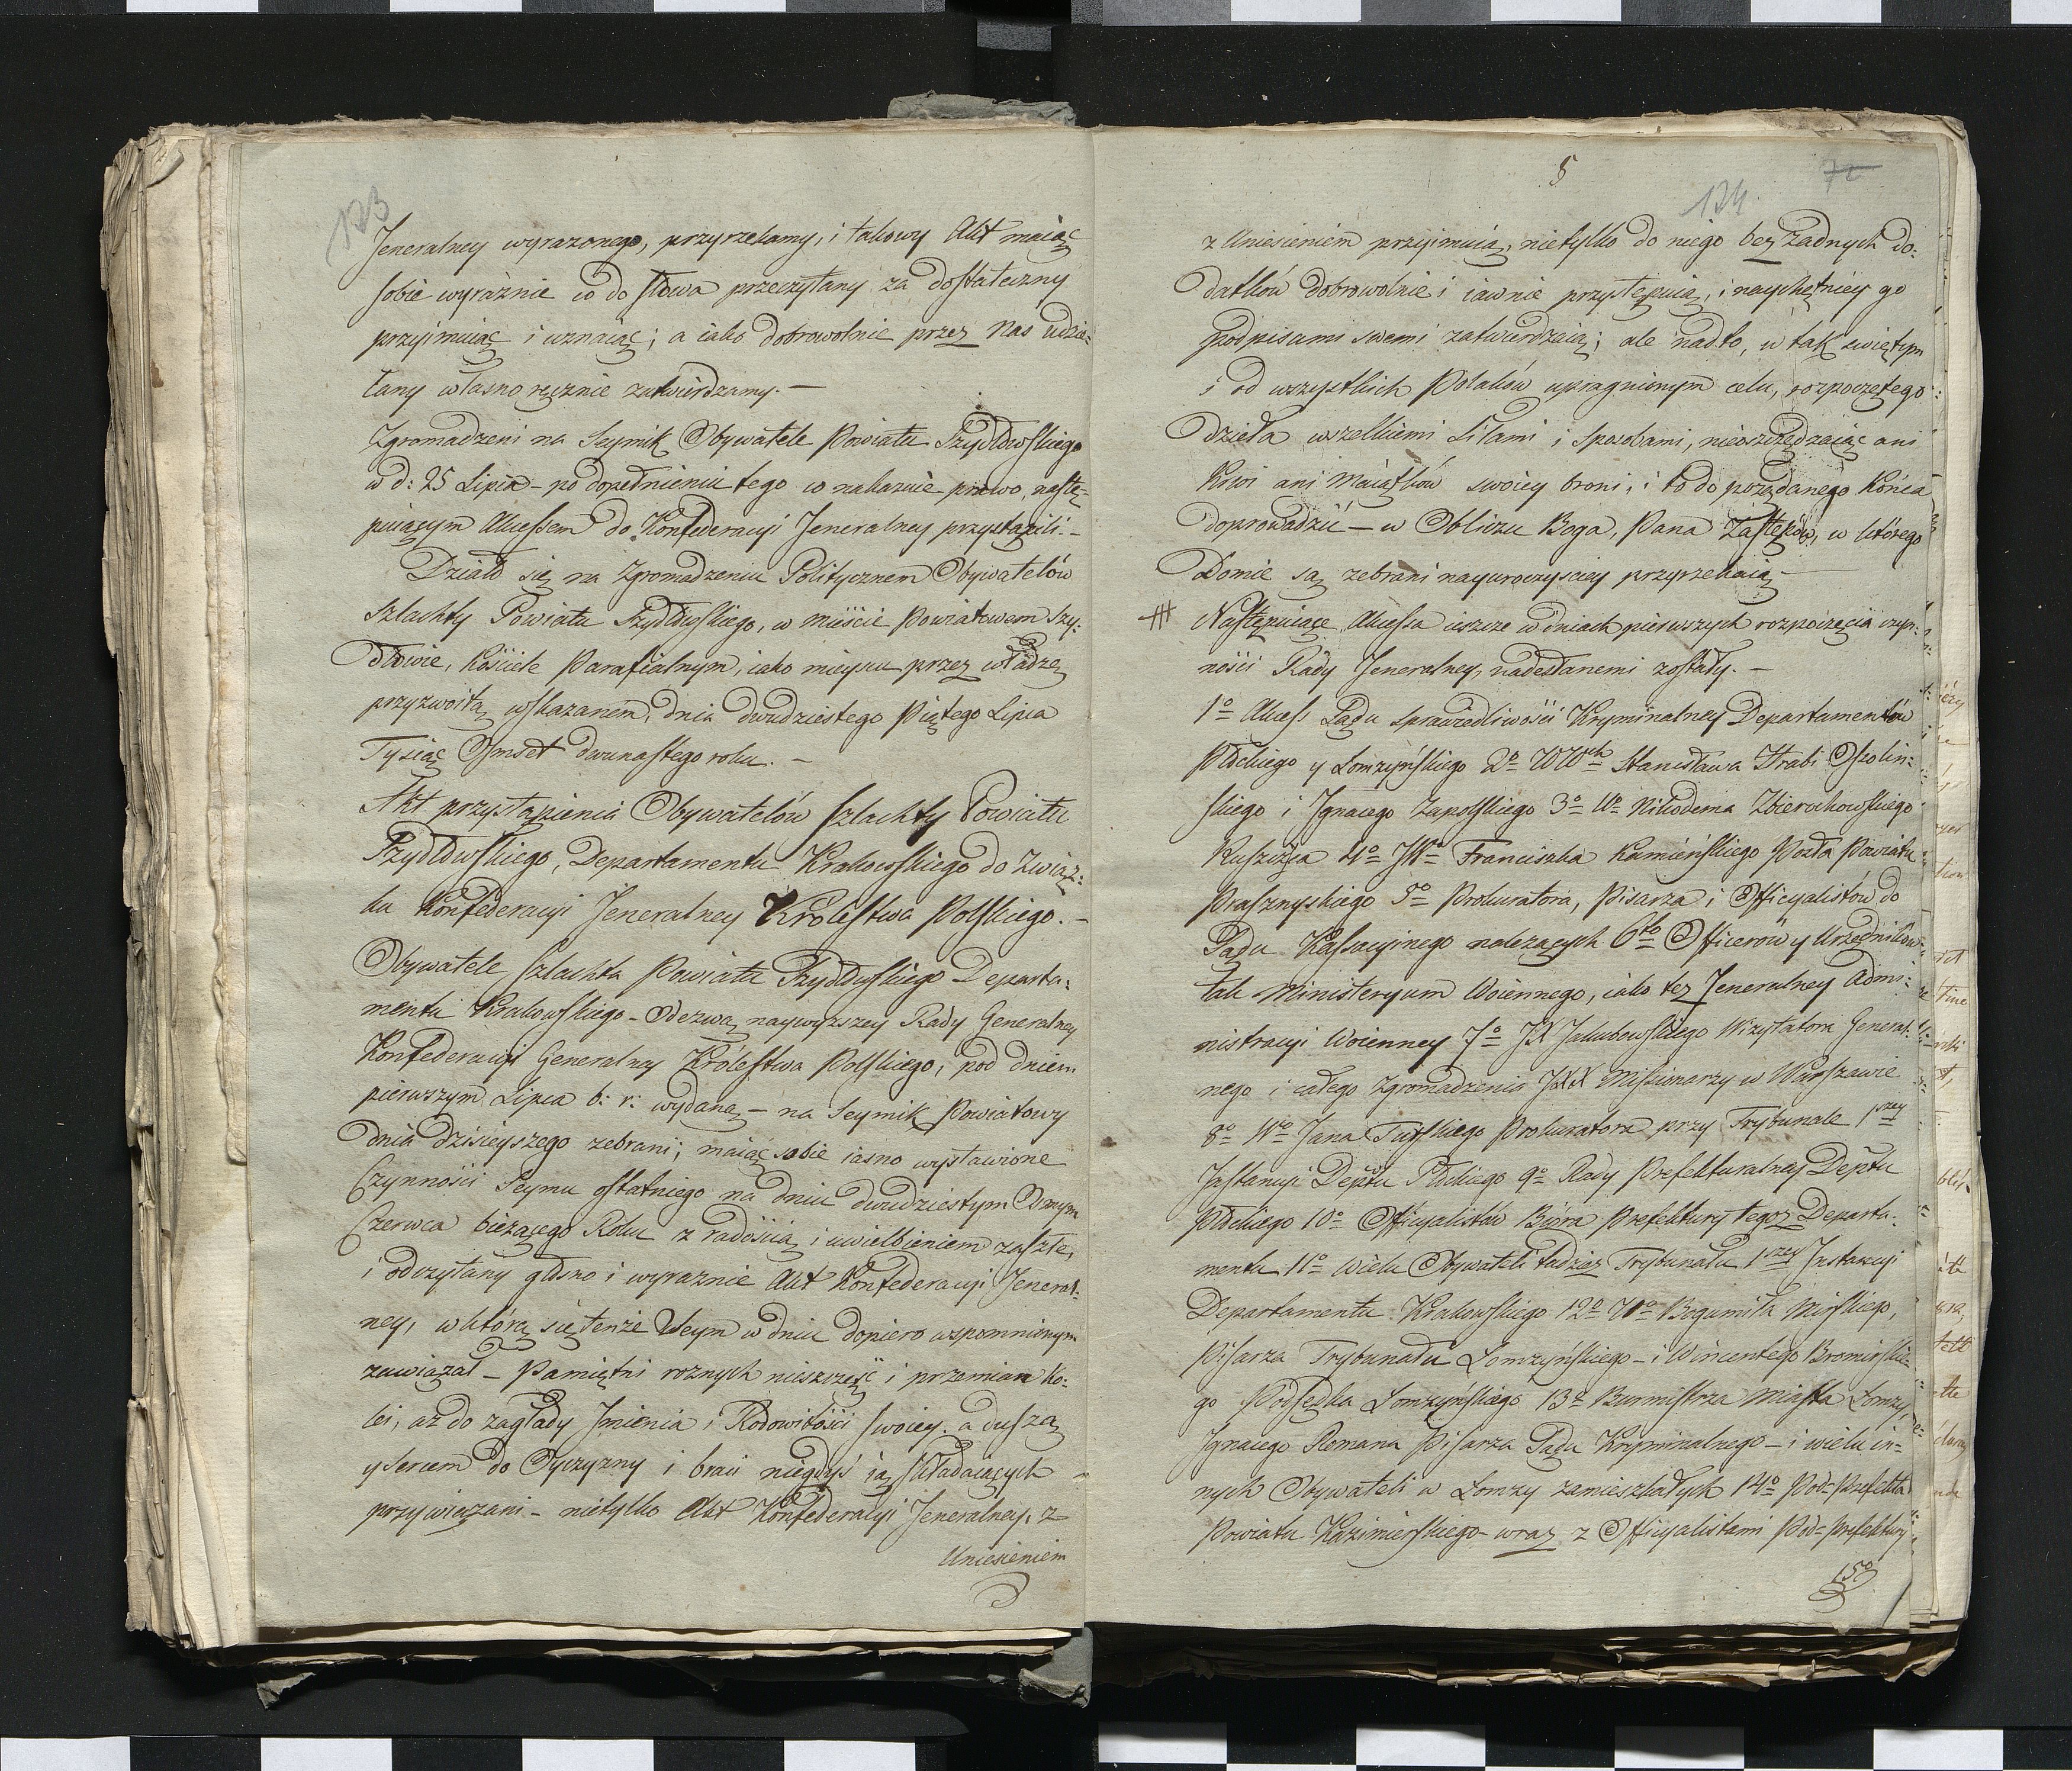 123
Jeneralney wyrazonego, przyrzekamy, i takowy Akt maiąc
sobie wyraźnie co do słowa przeczytany za dostateczny
przyimuiąc i uznaiąc; a iako dobrowolnie przez Nas udzia-
łany własno ręcznie zatwierdzamy. —
Zgromadzeni na Seymik Obywatele Powiatu Szydłowskiego
w d: 25 Lipca – po dopełnieniu tego co nakazuie prawo, nastę-
puiącym Akcessem do Konfederacyi Jeneralney przystąpili. –
Działo się na Zgromadzeniu Politycznem Obywatelów
Szlachty Powiatu Szydłowskiego, w mieście Powiatowem Szy:
dłowie, Kościele Parafialnym, iako mieyscu przez władzę
przyzwoitą wskazanem, dnia dwudziestego Piątego Lipca
Tysiąc Osmset dwunastego roku. –
Akt przystąpienia Obywatelów Szlachty Powiatu
Szydłowskiego, Departamentu Krakowskiego do Związ:
ku Konfederacyi Jeneralney Królestwa Polskiego. –
Obywatele Szlachta Powiatu Szydłowskiego Departa:
mentu Krakowskiego – Odezwą naywyższey Rady Generalney
Konfederacyi Generalney Królestwa Polskiego, pod dniem
pierwszym Lipca b: r: wydaną – na Seymik Powiatowy
dnia dzisieyszego zebrani; maiąc sobie iasno wystawione
Czynności Seymu ostatniego na dniu dwudziestym Osmym
Czerwca bieżącego Roku z radością i uwielbieniem zaszłe,
i odczytany głośno i wyraznie Akt Konfederacyi Jeneral:
ney, w którą się tenże Seym w dniu dopiero wspomnionym
zawiązał – Pamiętni roznych nieszczęść i przemian ko:
lei, aż do zagłady Imienia i Rodowitości swoiey, a duszą
y sercem do Oyczyzny i braci niegdyś ią składaiących
przywiązani – nietylko Akt Konfederacyi Jeneralney, z
Uniesieniem
5
124
72
z Uniesieniem przyimuią, nietylko do niego bez żadnych do:
datków dobrowolnie i iawnie przystępuią, i naychętniey go
podpisami swemi zatwierdzaią; ale nadto, w tak świętym
i od wszystkich Polaków upragnionym celu, rozpoczętego
Dzieła wszelkiemi siłami i sposobami, nieoszczędzaiąc ani
Krwi ani Maiątków swoiey broni, i to do pożądanego końca
doprowadzić – w Obliczu Boga, Pana Zastępów, w którego
Domie są zebrani nayuroczyściey przyrzekaią –
Następuiące Akcessa ieszcze w dniach pierwszych rozpoczęcia czyn:
ności Rady Jeneralney, nadesłanemi zostały. –
1º Akcess Sądu sprawiedliwości Kryminalney Departamentów
Płockiego y Łomzyńskiego 2º WWch Stanisława Hrabi Ossolin:
skiego i Ignacego Zapolskiego 3º Wº Nikodema Zbierochowskiego
4º JWº Franciszka Kamieńskiego Posła Powiatu
Prasznyskiego 5º Prokuratora, Pisarza i Officyalistów do
Sądu Kassacyinego należących 6to Officerów y Urzędników
tak Ministeryum Woiennego, iako też Jeneralney Admi:
nistracyi Woienney 7º JX Jakubowskiego Wizytatora General:
nego i całego Zgromadzenia JXX Missionarzy w Warszawie
8º Wº Jana Turskiego Prokuratora przy Trybunale 1szey
Instancyi Deptu Płockiego 9º Rady Prefekturalney Deptu
Płockiego 10º Officyalistów Biura Prefektury tegoz Departa:
mentu 11º Wielu Obywateli tudzież Trybunału 1szey Instancyi
Departamentu Krakowskiego 12º Wº Bogumiła Mirskiego,
Pisarza Trybunału Łomzyńskiego – i Wincentego Bromirskie:
go Podsędka Łomzyńskiego 13º Burmistrza Miasta Łomzy,
Ignacego Romana Pisarza Sądu Kryminalnego – i wielu in-
nych Obywateli w Łomzy zamieszkałych 14º Pod-Prefekta
Powiatu Kazimierskiego wraz z Officyalistami Pod-Prefektury
15º